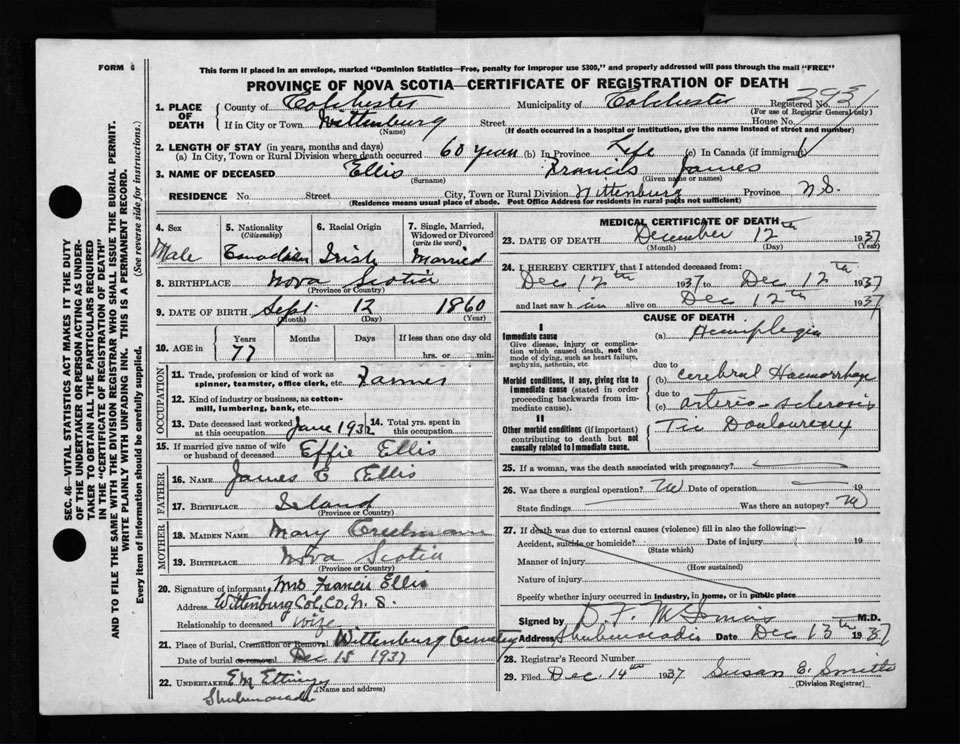 FORM 6
This form if placed in an envelope, marked "Dominion Statistics—Free, penalty for improper use $300," and properly addressed will pass through the mail "FREE"
PROVINCE OF NOVA SCOTIA—CERTIFICATE OF REGISTRATION OF DEATH
SEC. 46—VITAL STATISTICS ACT MAKES IT THE DUTY
OF THE UNDERTAKER OR PERSON ACTING AS UNDER-
TAKER TO OBTAIN ALL THE PARTICULARS REQUIRED
IN THE "CERTIFICATE OF REGISTRATION OF DEATH"
AND TO FILE THE SAME WITH THE DIVISION REGISTRAR WHO SHALL ISSUE THE BURIAL PERMIT.
WRITE PLAINLY WITH UNFADING INK. THIS IS A PERMANENT RECORD.
Every item of information should be carefully supplied. (See reverse side for instructions.)
1. PLACE OF DEATH
County of Colchester Municipality of Colchester Registered No.
(For use of Registrar General only)
If in City or Town Wittenburg Street House No.
(Name) (If death occurred in a hospital or institution, give the name instead of street and number)
2. LENGTH OF STAY (in years, months and days)
(a) In City, Town or Rural Division where death occurred 60 years (b) In Province Life (c) In Canada (if immigrant)
3. NAME OF DECEASED Ellis Francis James
(Surname) (Given name or names)
RESIDENCE No. Street City, Town or Rural Division Wittenburg Province N.S.
(Residence means usual place of abode. Post Office Address for residents in rural parts not sufficient)
4. Sex Male
5. Nationality (Citizenship) Canadian
6. Racial Origin Irish
7. Single, Married, Widowed or Divorced (write the word) Married
8. BIRTHPLACE Nova Scotia
(Province or Country)
9. DATE OF BIRTH Sept 12 1860
(Month) (Day) (Year)
10. AGE in Years 77 Months Days If less than one day old
hrs. or min.
OCCUPATION
11. Trade, profession or kind of work as
spinner, teamster, office clerk, etc. Farmer
12. Kind of industry or business, as cotton-
mill, lumbering, bank, etc.
13. Date deceased last worked at this occupation June 1932
14. Total yrs. spent in this occupation
15. If married give name of wife
or husband of deceased Effie Ellis
FATHER
16. NAME James E Ellis
17. BIRTHPLACE Irland
(Province or Country)
MOTHER
18. MAIDEN NAME Mary Creelmann
19. BIRTHPLACE Nova Scotia
(Province or Country)
20. Signature of informant Mrs Francis Ellis
Address Wittenburg Col. Co, N. S.
Relationship to deceased wife
21. Place of Burial, Cremation or Removal Wittenburg Cemetey
Date of burial or removal Dec 15 1937
22. UNDERTAKER
(Name and address)
Shubenacadie
MEDICAL CERTIFICATE OF DEATH
23. DATE OF DEATH December 12th 1937
(Month) (Day) (Year)
24. I HEREBY CERTIFY that I attended deceased from:
Dec 12th 1937 to Dec 12th 1937
and last saw h im alive on Dec 12th 1937
CAUSE OF DEATH
I
Immediate cause
Give disease, injury or complica-
tion which caused death, not the
mode of dying, such as heart failure,
asphyxia, asthenia, etc.
(a) Hemiplegia
due to
Morbid conditions, if any, giving rise to
immediate cause (stated in order
proceeding backwards from im-
mediate cause).
(b) Cerebral Haemorrhage
due to
(c) arterio-sclerosis
II
Other morbid conditions (if important)
contributing to death but not
causally related to immediate cause.
Tic Douloureux
25. If a woman, was the death associated with pregnancy?
26. Was there a surgical operation? No Date of operation 19
State findings Was there an autopsy? No
27. If death was due to external causes (violence) fill in also the following:—
Accident, suicide or homicide? Date of injury 19
(State which)
Manner of injury
(How sustained)
Nature of injury
Specify whether injury occurred in industry, in home, or in public place
Signed by D. F. M.D.
Address Shubenacadie Date Dec 13th 1937
28. Registrar's Record Number
29. Filed Dec. 14th 1937 Susan E. Smith
(Division Registrar)